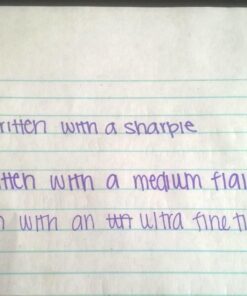 ritten with a sharpie
tten with a medium flai
n with an ultra fine ti